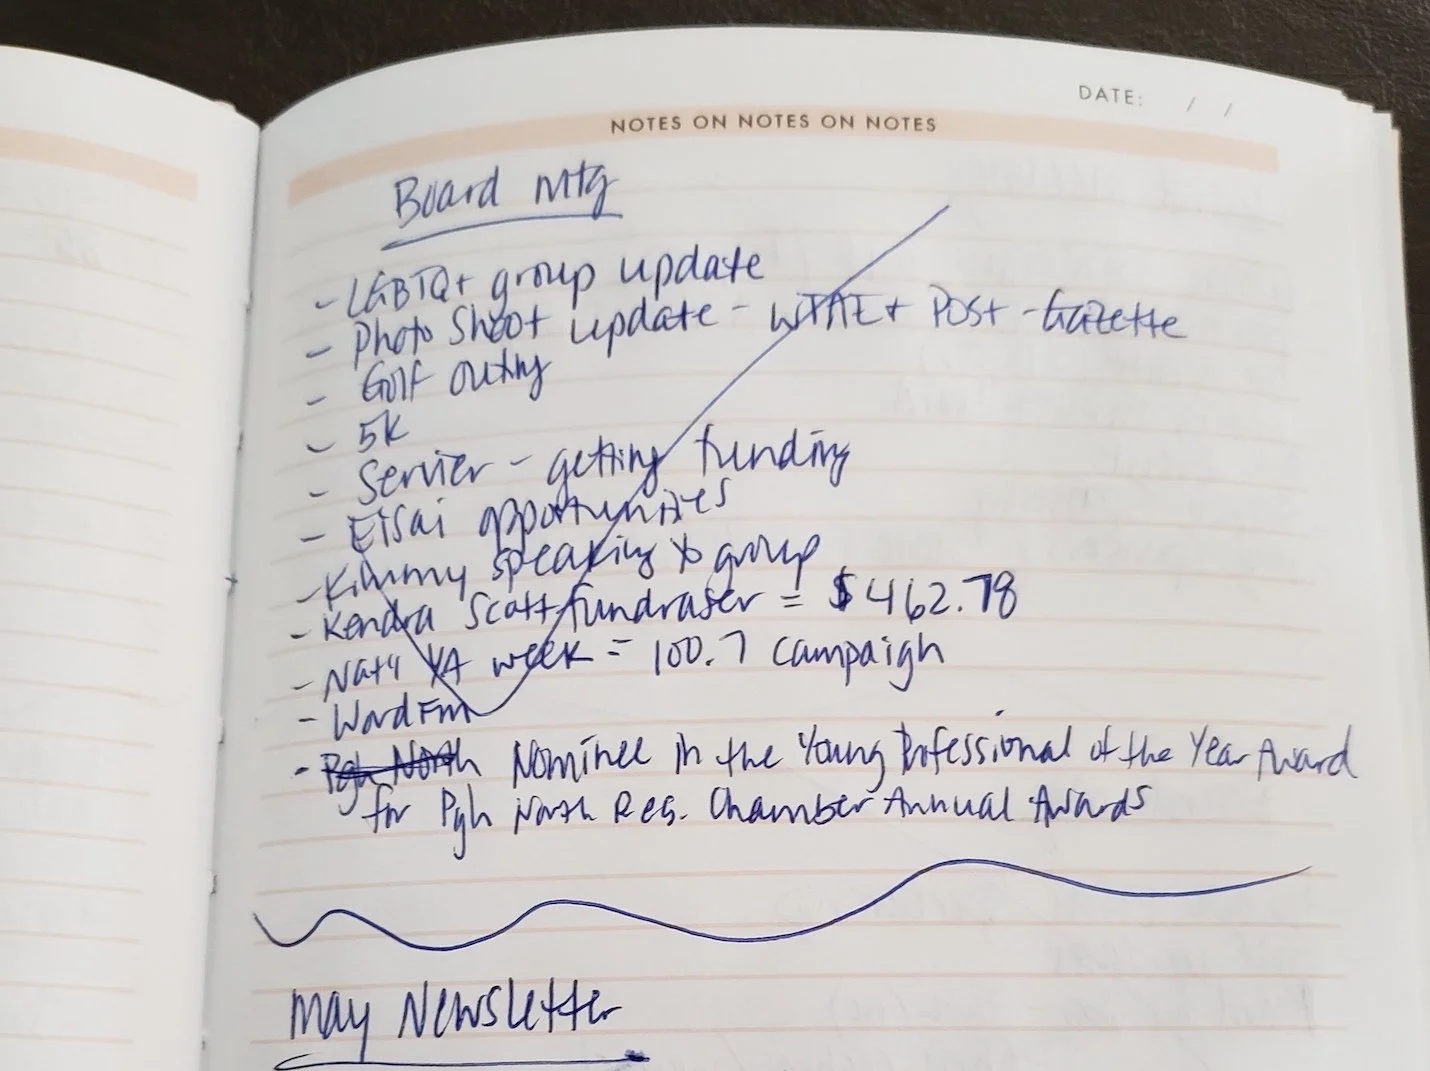 DATE: / /
NOTES ON NOTES ON NOTES
Board Mtg
- LGBTQ+ group update
- Photo Shoot update - WTAE + Post-Gazette
- Golf outing
- 5K
- Servier - getting funding
- Eisai opportunities
- Kimmy speaking to group
- Kendra Scott fundraser = $462.78
- Nat'l YA week = 100.7 campaign
- Word FM
- Pgh North Nominee in the Young Professional of the Year Award
for Pgh North Reg. Chamber Annual Awards
May Newsletter